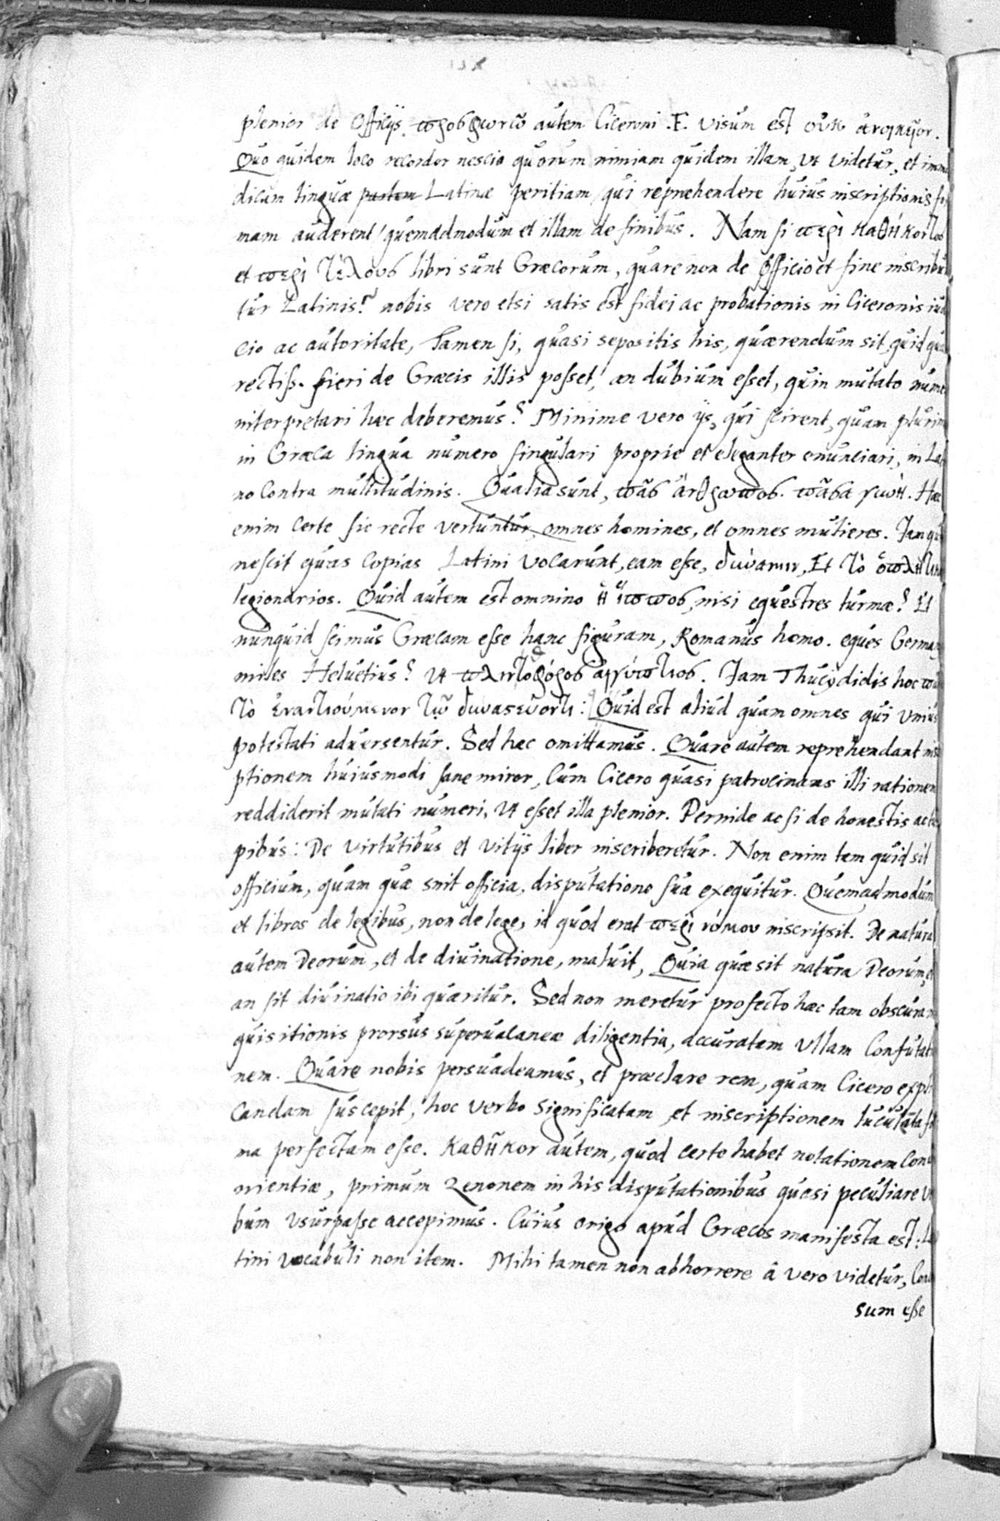 plenior de Officijs. προσφωνῶ autem Ciceroni .F. visum est οὐκ ἀνοίκειον.
Quo quidem loco recordor nescio quorum nimiam quidem illam, vt videtur, et imm
dicam linguæ Latinæ peritiam, qui reprehendere huius inscriptionis fo
mam auderent, quemadmodum et illam de finibus. Nam si περὶ καθήκοντος
et περὶ τέλους libri sunt Græcorum, quare non de Officio et fine inscribu
tur Latinis? nobis vero etsi satis est fidei ac probationis in Ciceronis iud
cio ac autoritate, tamen si, quasi sepositis his, quærendum sit, quid qua
rectiss. fieri de Græcis illis posset, an dubium esset, quin mutato nume
interpretari hæc deberemus? Minime vero ijs, qui scirent, quam plurim
in Græca lingua numero singulari proprie et eleganter enunciari, in La
no contra multitudinis. Qualia sunt, πᾶς ἄνθρωπος. πᾶσα γυνή. Hæc
enim certe sic recte vertuntur, omnes homines, et omnes mulieres. Iam quis
nescit quas copias Latini vocarunt, eam esse, δύναμιν, Et τὸ ὁπλιτικὸ
legionarios. Quid autem est omnino ἡ ἵππος, nisi equestres turmæ? Et
nunquid scimus Græcam esse hanc figuram, Romanus homo. eques Germa
miles Helvetius? vt Αἰγύπτιος. Iam Thucydidis hoc πᾶν
τὸ ἐναντιούμενον τῷ δυναστεύοντι: Quid est aliud quam omnes qui vnius
potestati adversentur. Sed hæc omittamus. Quare autem reprehendant ins
ptionem huiusmodi sane miror, Cum Cicero quasi patrocinans illi rationem
reddiderit mutati numeri, vt esset illa plenior. Perinde ac si de honestis ac tu
pibus: De virtutibus et vitijs liber inscriberetur. Non enim tam quid sit
officium, quam quæ sint officia, disputatione sua exequitur. Quemadmodum
et libros de legibus, non de lege, id quod erat περὶ νόμου inscripsit. De natura
autem Deorum, et de divinatione, maluit, Quia quæ sit natura Deorum, e
an sit divinatio ibi quæritur. Sed non meretur profecto hæc tam obscura in
quisitionis prorsus supervacaneæ diligentia, accuratam vllam Confutati
nem. Quare nobis persuadeamus, et præclare rem, quam Cicero expli
candam suscepit, hoc verbo significatam et inscriptionem luculenta fo
ma perfectam esse. καθῆκον autem, quod certe habet notationem conv
nientiæ, primum Zenonem in his disputationibus quasi peculiare v
bum vsurpasse accepimus. Cuius origo apud Græcos manifesta est: La
tini vocabuli non item. Mihi tamen non abhorrere â vero videtur, Con
sum esse